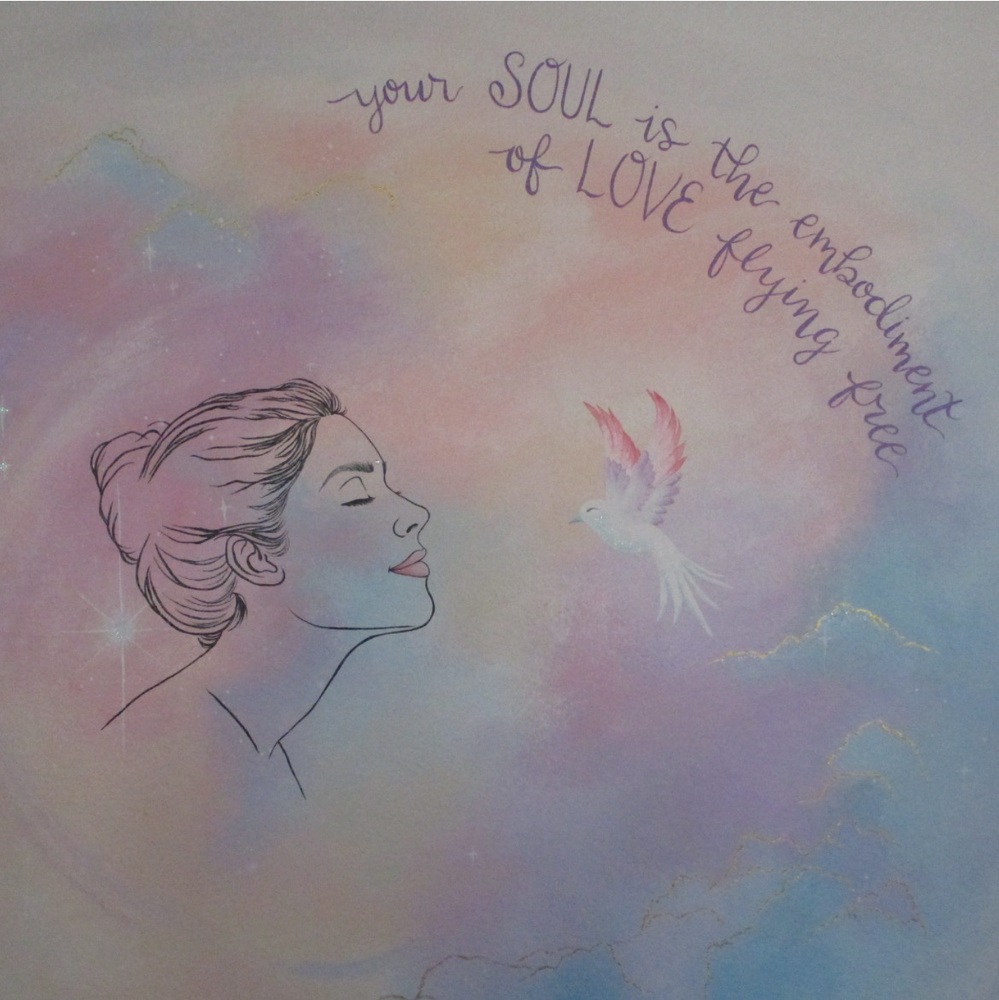 your SOUL is the embodiment
of LOVE flying free